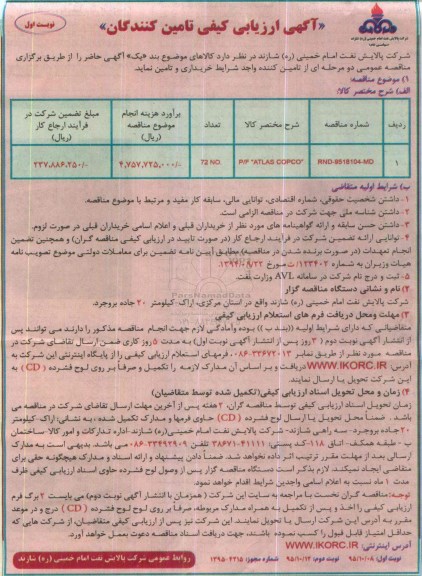 نوبت اول
«آگهی ارزیابی کیفی تامین کنندگان»
شرکت پالایش نفت امام خمینی (ره) شازند در نظر دارد کالاهای موضوع بند «یک» آگهی حاضر را از طریق برگزاری
مناقصه عمومی دو مرحله ای از تامین کننده واجد شرایط خریداری و تامین نماید.
۱) موضوع مناقصه:
الف) شرح مختصر کالا:
ردیف شماره مناقصه شرح مختصر کالا: تعداد برآورد هزینه انجام موضوع مناقصه (ریال) مبلغ تضمین شرکت در فرآیند ارجاع کار (ریال)
۱ RND-9518104-MD P/F "ATLAS COPCO" 72 NO. ۴,۷۵۷,۷۲۵,۰۰۰/- ۲۳۷,۸۸۶,۲۵۰/-
ب) شرایط اولیه متقاضی
۱- داشتن شخصیت حقوقی، شماره اقتصادی، توانایی مالی، سابقه کار مفید و مرتبط با موضوع مناقصه.
۲- داشتن شناسه ملی جهت شرکت در مناقصه الزامی است.
۳- داشتن حسن سابقه و ارائه گواهینامه های مورد نظر از خریداران قبلی و اعلام اسامی خریداران قبلی در صورت لزوم.
۴- توانایی ارائه تضمین شرکت در فرآیند ارجاع کار (در صورت تایید در ارزیابی کیفی مناقصه گران) و همچنین تضمین
انجام تعهدات (در صورت برنده شدن در مناقصه) مطابق آیین نامه تضمین برای معاملات دولتی موضوع تصویب نامه
هیات وزیران به شماره ۱۲۳۴۰۲/ت مورخ ۱۳۹۴/۰۹/۲۲
۵- ثبت و درج نام شرکت در سامانه AVL وزارت نفت.
۲) نام و نشانی دستگاه مناقصه گزار
شرکت پالایش نفت امام خمینی (ره) شازند واقع در استان مرکزی، اراک، کیلومتر ۲۰ جاده بروجرد.
۳) مهلت ومحل دریافت فرم های استعلام ارزیابی کیفی
متقاضیانی که دارای شرایط اولیه ((بند ب )) بوده وآمادگی لازم جهت انجام مناقصه مذکور را دارند می توانند پس
از انتشار آگهی نوبت دوم ( ۳ روز پس از انتشار آگهی نوبت اول) به مدت ۵ روز کاری ضمن ارسال تقاضای شرکت در
مناقصه مورد نظر از طریق نمابر ۳۳۶۷۲۰۱۳-۰۸۶ فرمهای استعلام ارزیابی کیفی را از پایگاه اینترنتی این شرکت به
آدرس: WWW.IKORC.IR دریافت و بر اساس آن مدارک لازمه را تکمیل و صرفا بر روی لوح فشرده ( CD ) به
این شرکت تحویل یا ارسال نمایند.
۴) زمان و محل تحویل اسناد ارزیابی کیفی(تکمیل شده توسط متقاضیان)
زمان تحویل اسناد ارزیابی کیفی توسط مناقصه گران، ۲ هفته پس از آخرین مهلت ارسال تقاضای شرکت در مناقصه می
باشد. ضمناً محل تحویل یا ارسال لوح فشرده (CD) حاوی فرمها و مدارک تکمیل شده، به نشانی: اراک- کیلومتر
۲۰ جاده بروجرد- سه راهی شازند- شرکت پالایش نفت امام خمینی(ره) شازند، اداره تدارکات و امور کالا ساختمان
ب- طبقه همکف- اتاق ۱۱۸- کد پستی: ۴۱۱۱۱-۳۸۶۷۱ تلفن ۳۳۴۹۲۹۰۹-۰۸۶ می باشد. بدیهی است به مدارک
ارسالی بعد از مهلت مقرر ترتیب اثر داده نخواهد شد. ضمناً دادن پیشنهاد و ارائه اسناد و مدارک هیچگونه حقی برای
متقاضی ایجاد نمیکند. لازم بذکر است دستگاه مناقصه گزار پس از وصول لوح فشرده حاوی اسناد ارزیابی کیفی ظرف
مدت ۱ ماه نسبت به اعلام اسامی واجدین شرایط اقدام خواهد نمود.
توجه: مناقصه گران نخست با مراجعه به سایت این شرکت ( همزمان با انتشار آگهی نوبت دوم) می بایست ۲ برگ فرم
ارزیابی کیفی را اخذ و پس از تکمیل به همراه مدارک مربوطه، صرفاً بر روی لوح لوح فشرده ( CD ) درج و در موعد
مقرر به آدرس این شرکت ارسال یا تحویل نمایند. این شرکت نیز پس از ارزیابی کیفی متقاضیان، از شرکت هایی که
حداقل امتیاز قابل قبول را کسب نموده باشند، جهت دریافت اسناد مناقصه دعوت بعمل خواهد آورد.
آدرس اینترنتی: WWW.IKORC.IR
نوبت اول: ۹۵/۱۰/۰۸ نوبت دوم: ۹۵/۱۰/۱۲ شماره مجوز: ۱۳۹۵،۴۳۱۵ روابط عمومی شرکت پالایش نفت امام خمینی (ره) شازند